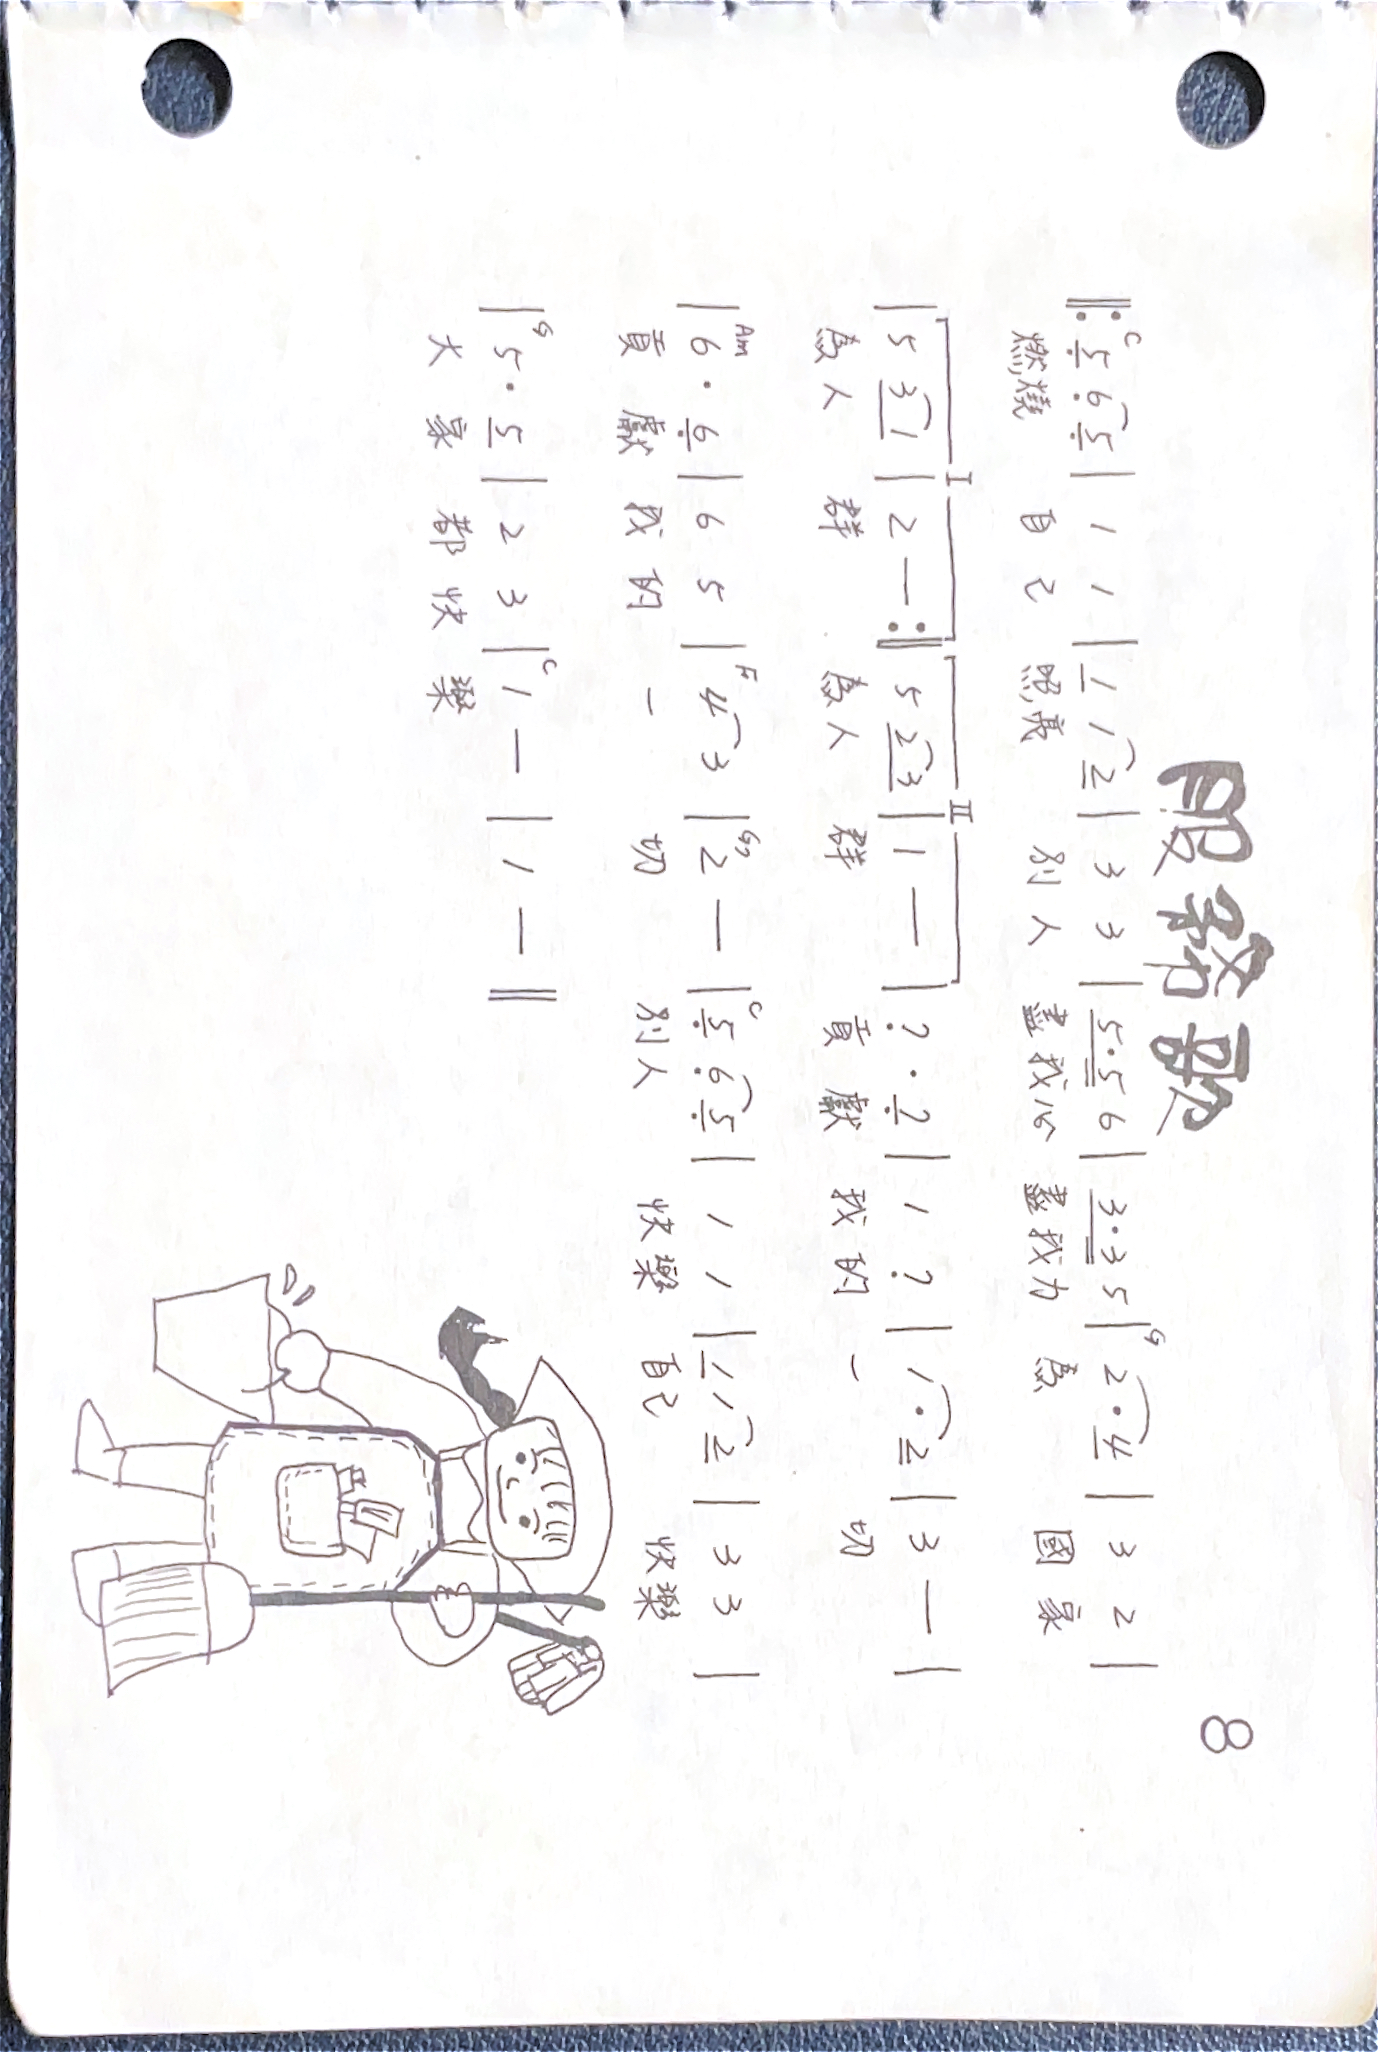 服務歌
8
C G
‖: 5 6 5 | 1 1 | 1 1 2 | 3 3 | 5·5 6 | 3·3 5 | 2·4 | 3 2 |
燃燒 自己 照亮 別人 盡我心 盡我力 為 國家
I II
| 5 3 1 | 2 — :‖ 5 2 3 | 1 — | 7·7 | 1 7 | 1·2 | 3 — |
為人 群 為人 群 貢獻 我的 一 切
Am F G7 C
| 6·6 | 6 5 | 4 3 | 2 — | 5 6 5 | 1 1 | 1 1 2 | 3 3 |
貢獻 我的 一 切 別人 快樂 自己 快樂
G C
| 5·5 | 2 3 | 1 — | 1 — ‖
大家 都快 樂